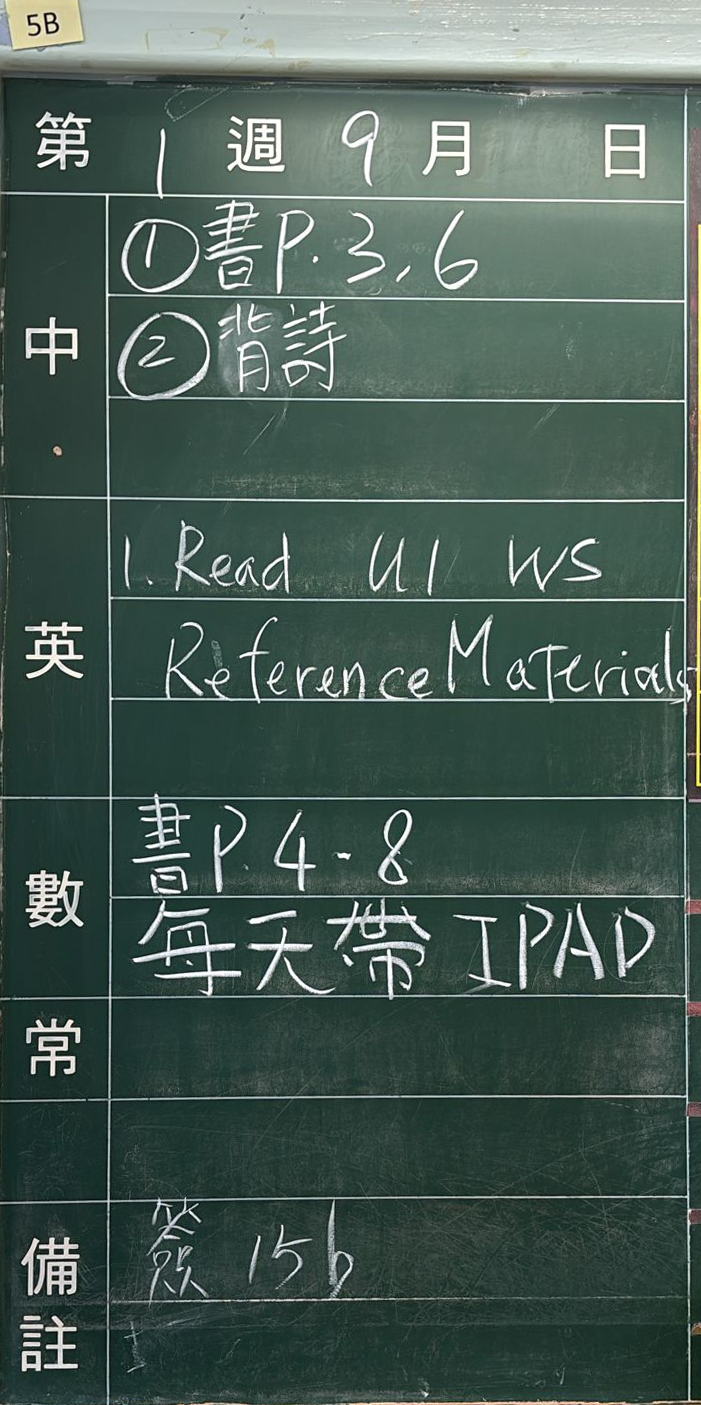 5B
第 1 週 9 月 日
中
①書P.3,6
②背詩
英
1. Read U1 WS
Reference Materials
數
書P.4-8
每天帶 IPAD
常
備註
簽 15b